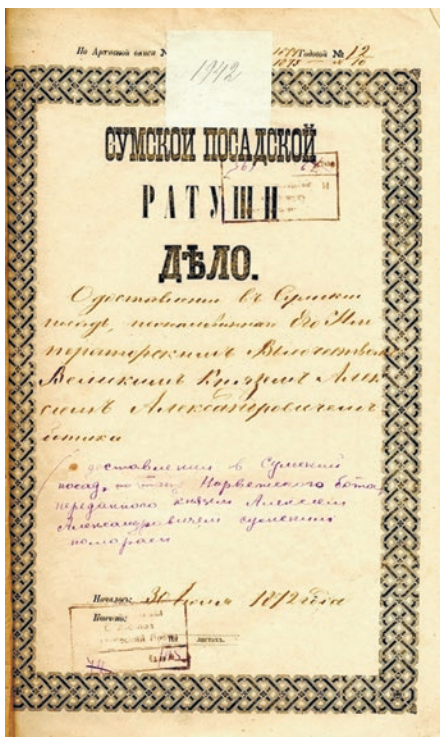 По Архивной описи №
Годовой № 12
1942
СУМСКОЙ ПОСАДСКОЙ
РАТУШИ
ДѢЛО.
О доставленіи въ Сумскій
посадъ, пожалованнаго Его Им
ператорскимъ Высочествомъ
Великимъ Княземъ Алек
сѣемъ Александровичемъ
ботика
о доставлении в Сумский
посад, Норвежского бота,
переданного князем Алексеем
Александровичем сумским
поморам
Началось: 30 Іюля 1872 года
листахъ.